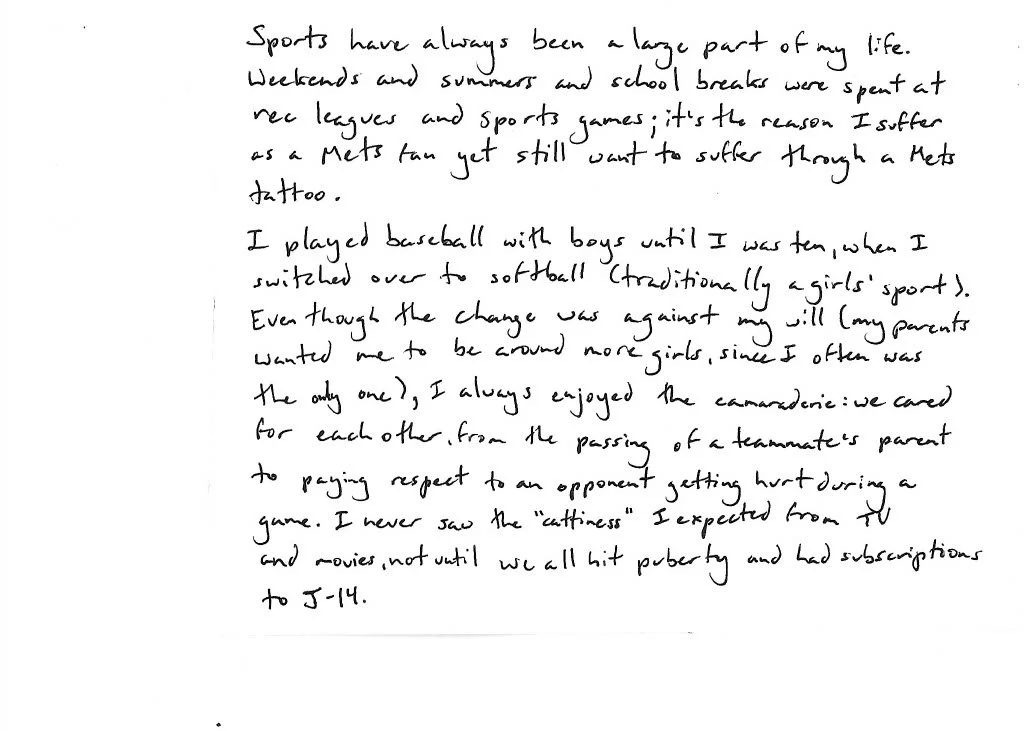 Sports have always been a large part of my life.
Weekends and summers and school breaks were spent at
rec leagues and sports games; it's the reason I suffer
as a Mets fan yet still want to suffer through a Mets
tattoo.
I played baseball with boys until I was ten, when I
switched over to softball (traditionally a girls' sport).
Even though the change was against my will (my parents
wanted me to be around more girls, since I often was
the only one), I always enjoyed the camaraderie: we cared
for each other, from the passing of a teammate's parent
to paying respect to an opponent getting hurt during a
game. I never saw the "cattiness" I expected from TV
and movies, not until we all hit puberty and had subscriptions
to J-14.